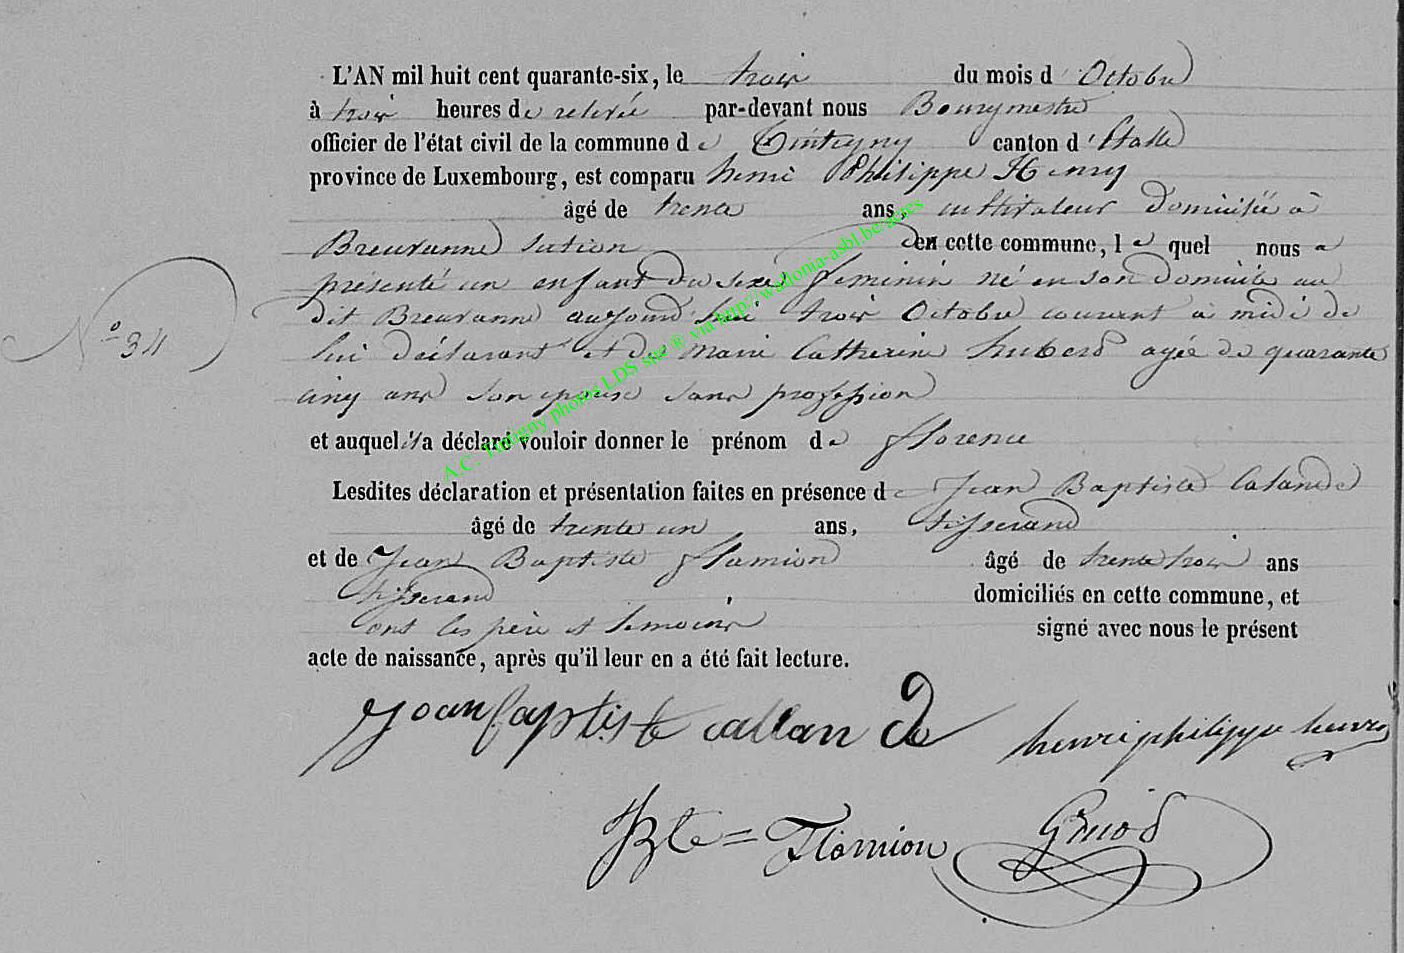 L'AN mil huit cent quarante-six, le trois du mois d'Octobre
à trois heures de relevée par-devant nous Bourgmestre
officier de l'état civil de la commune de Tintigny canton d'Etalle
province de Luxembourg, est comparu henri Philippe Henry
âgé de trente ans, cultivateur domicilié à
Breuvanne section den cette commune, lequel nous a
présenté un enfant du sexe feminin né en son domicile au
dit Breuvanne aujourd'hui trois Octobre courant à midi de
N° 34
lui déclarant et de Marie Catherine hubert agée de quarante
cinq ans son epouse sans profession
et auquel il a déclaré vouloir donner le prénom de florence
Lesdites déclaration et présentation faites en présence de Jean Baptiste Calande
âgé de trente un ans, tisserand
et de Jean Baptiste flamion âgé de trente trois ans
tisserand domiciliés en cette commune, et
ont les père et temoins signé avec nous le présent
acte de naissance, après qu'il leur en a été fait lecture.
joan baptiste callan de henri philippe henry
JBte = Flamion
A.C. Tintigny photos LDS spe ® via http://wallonia-asbl.be/actes